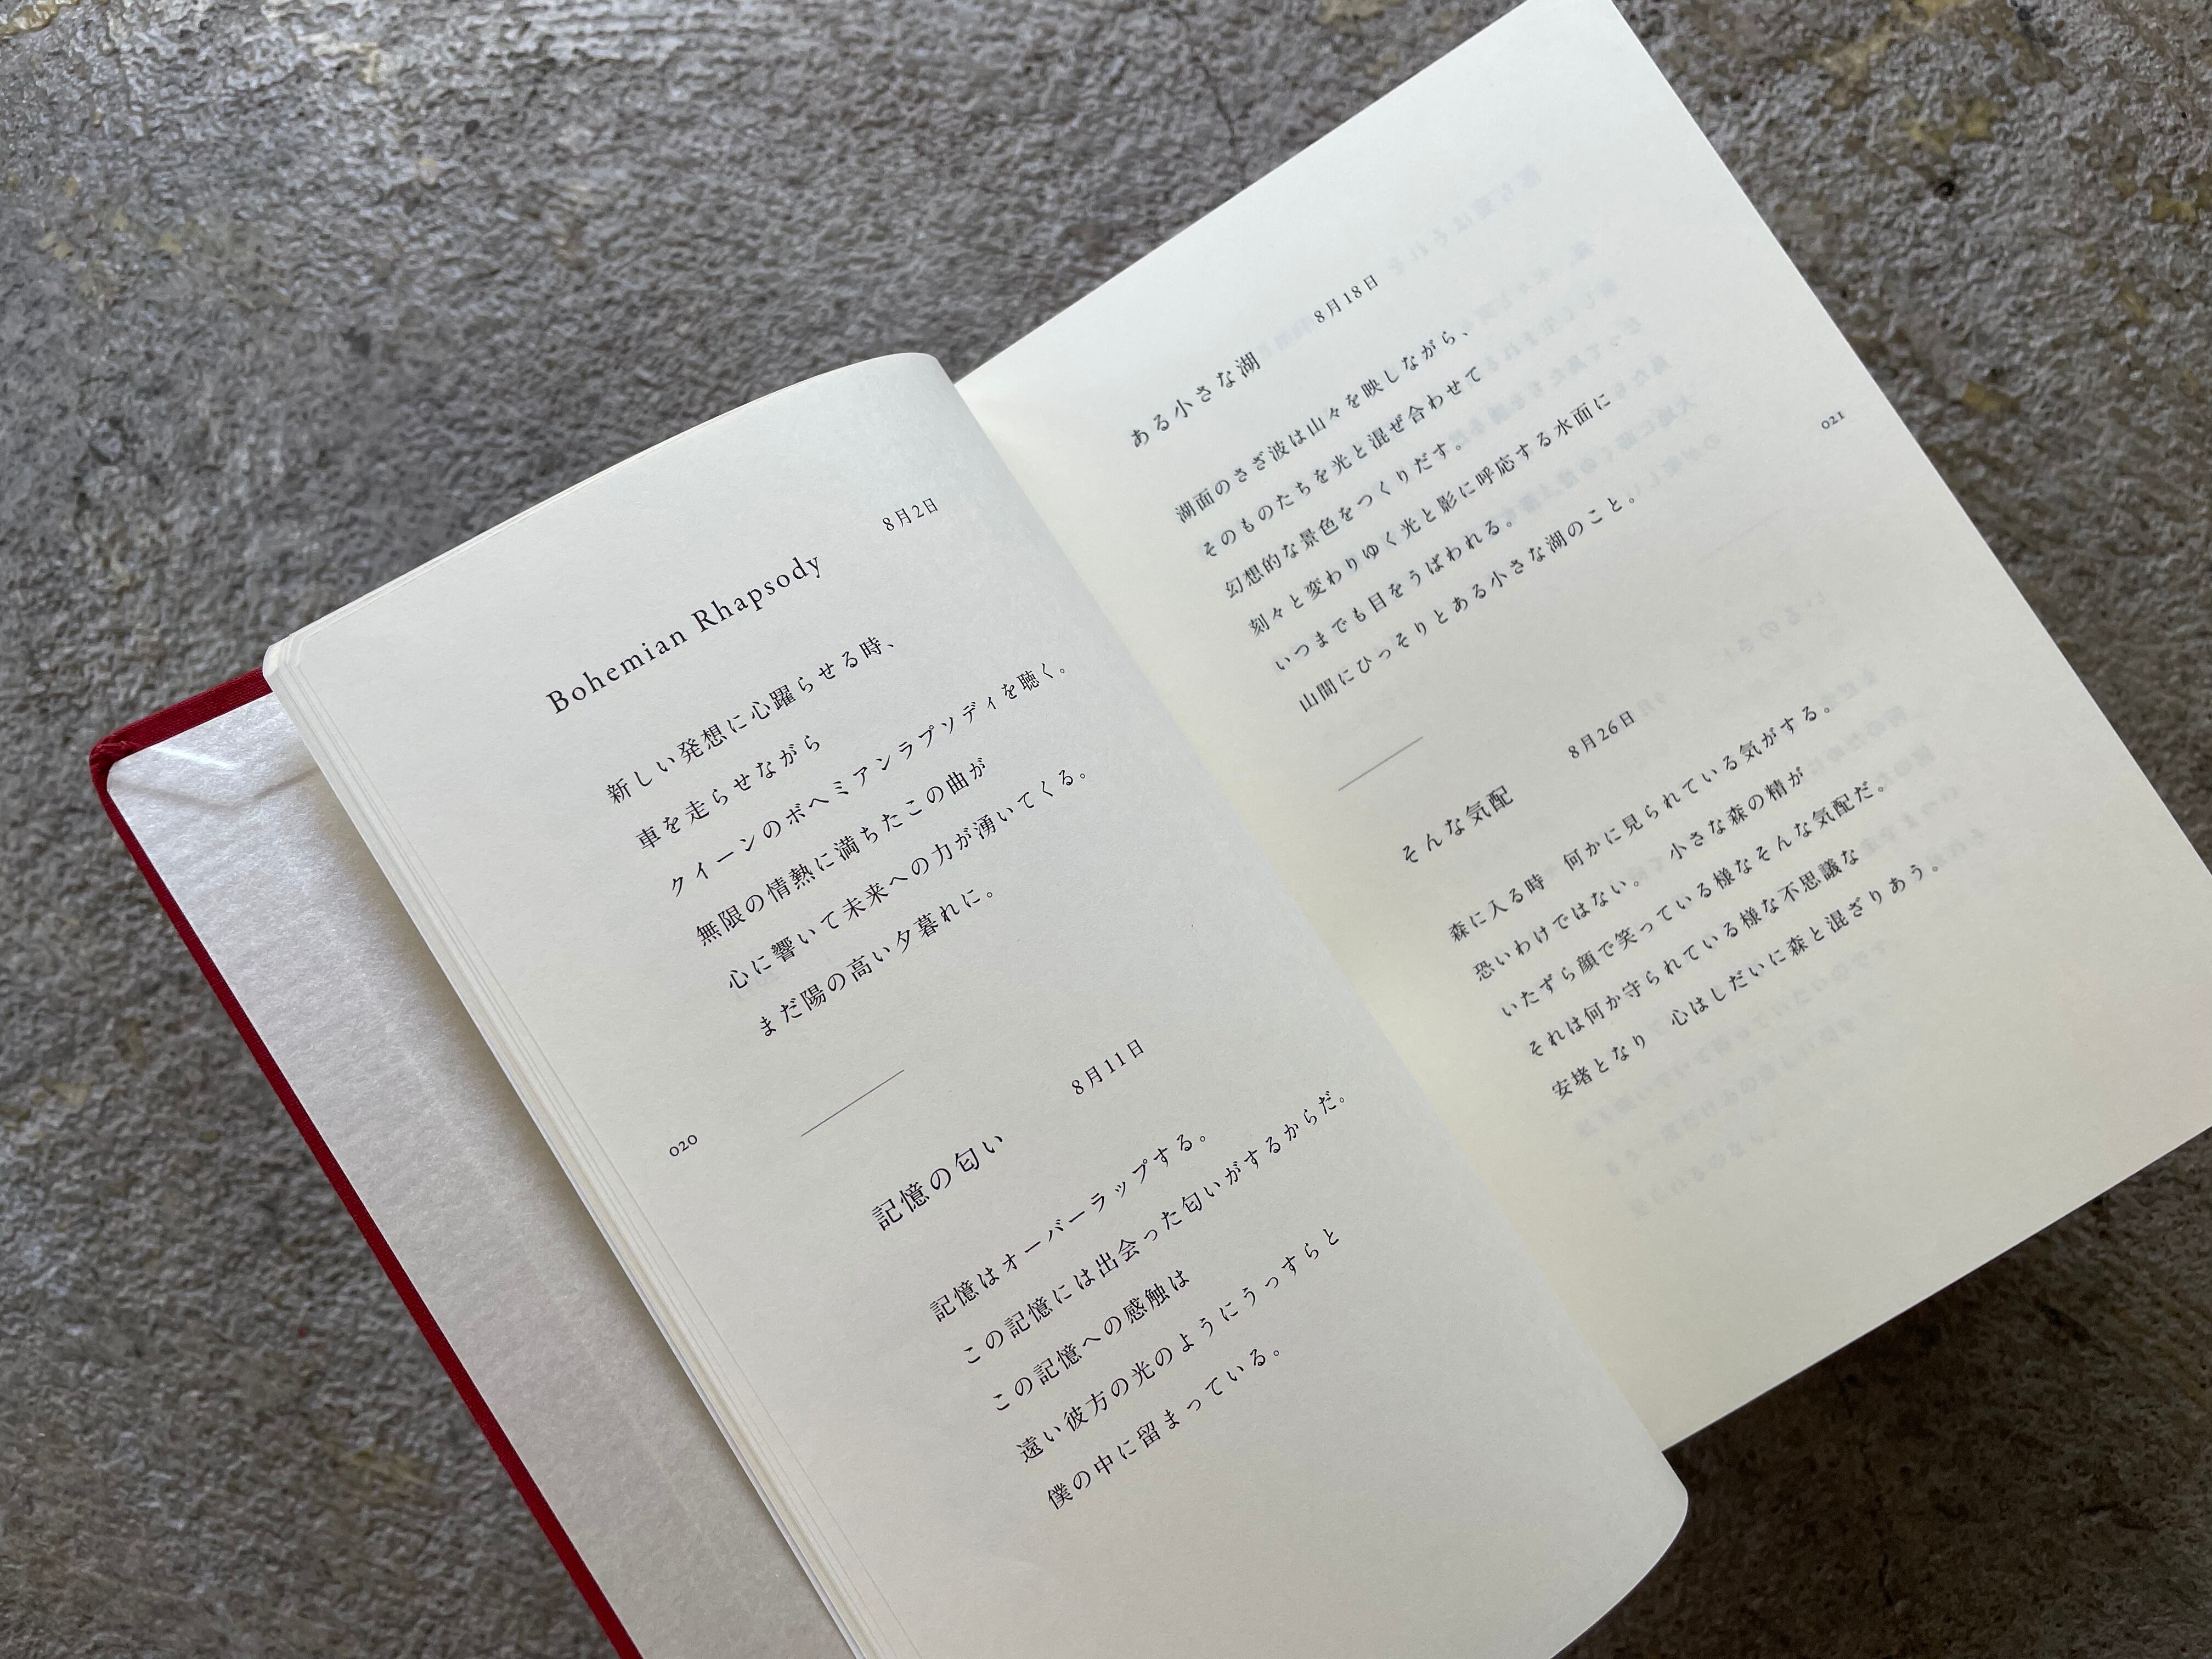 8月2日
Bohemian Rhapsody
新しい発想に心躍らせる時、
車を走らせながら
クイーンのボヘミアンラプソディを聴く。
無限の情熱に満ちたこの曲が
心に響いて未来への力が湧いてくる。
まだ陽の高い夕暮れに。
8月11日
記憶の匂い
記憶はオーバーラップする。
この記憶には出会った匂いがするからだ。
この記憶への感触は
遠い彼方の光のようにうっすらと
僕の中に留まっている。
020
8月18日
ある小さな湖
湖面のさざ波は山々を映しながら、
そのものたちを光と混ぜ合わせて
幻想的な景色をつくりだす。
刻々と変わりゆく光と影に呼応する水面に
いつまでも目をうばわれる。
山間にひっそりとある小さな湖のこと。
8月26日
そんな気配
森に入る時　何かに見られている気がする。
恐いわけではない。　小さな森の精が
いたずら顔で笑っている様なそんな気配だ。
それは何か守られている様な不思議な
安堵となり　心はしだいに森と混ざりあう。
021